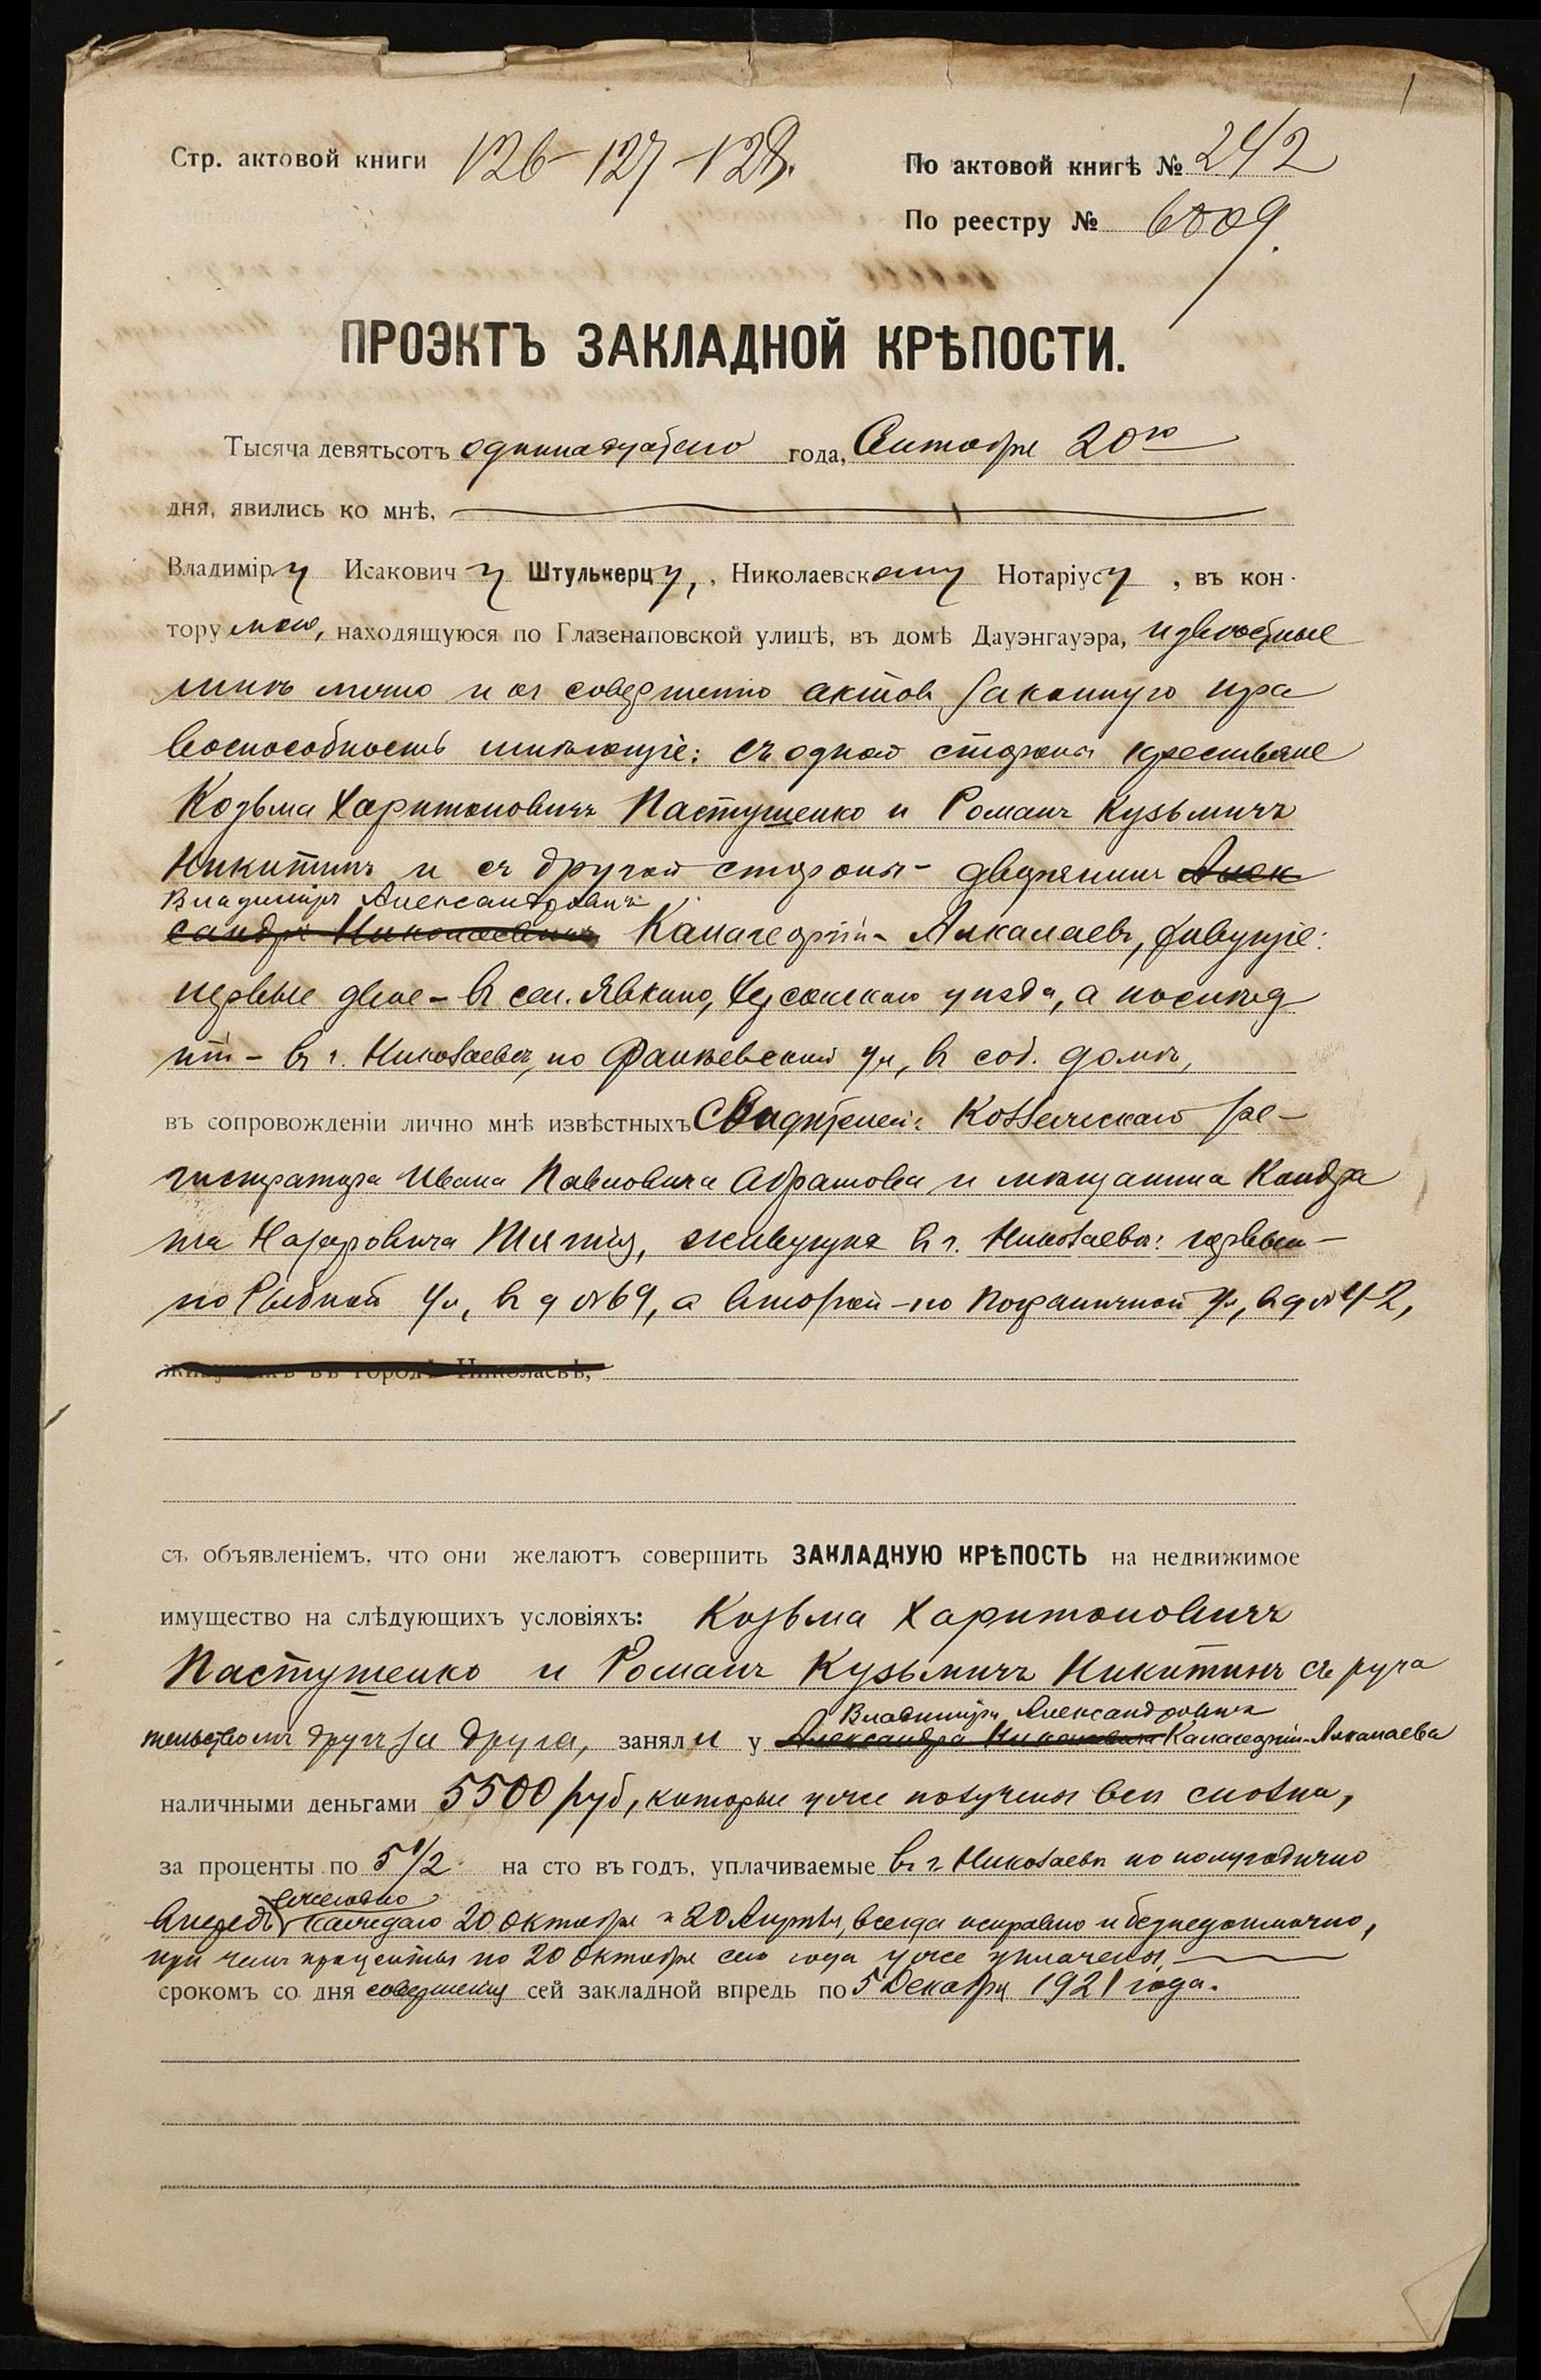 1
Стр. актовой книги 126-127-128.
По актовой книгѣ № 242
По реестру № 6809.
ПРОЭКТЪ ЗАКЛАДНОЙ КРѢПОСТИ.
Тысяча девятьсотъ одиннадцатаго года, 20го
дня, явились ко мнѣ,
Владиміру Исаковичу Штулькерцу, Николаевскому Нотаріусу, въ кон-
тору мою, находящуюся по Глазенаповской улицѣ, въ домѣ Дауэнгауэра, извѣстные
мнѣ лично и къ совершенію актовъ законную пра
воспособность имѣющіе: съ одной стороны крестьяне
Козьма Харитоновичъ Пастушенко и Романъ Кузьмичъ
Никитинъ и съ другой стороны - дворянинъ Алек
Владиміръ Александровичъ
сандръ Николаевичъ Калагеоргій-Алкалаевъ, живущіе:
первые двое - въ сел. Явкино, Херсонскаго уѣзда, а послѣд
ній - въ г. Николаевѣ, по Фалѣевской ул, въ соб. домѣ,
въ сопровожденіи лично мнѣ извѣстныхъ Свидѣтелей: Коллежскаго ре-
гистратора Ивана Павловича Абрамова и мѣщанина Кондра
та Назаровича живущихъ въ г. Николаевѣ: первый -
по Рыбной ул, въ д № 69, а второй - по Пограничной ул, въ д № 42,
живущихъ въ городѣ Николаевѣ,
съ объявленіемъ, что они желаютъ совершить ЗАКЛАДНУЮ КРѢПОСТЬ на недвижимое
имущество на слѣдующихъ условіяхъ: Козьма Харитоновичъ
Пастушенко и Романъ Кузьмичъ Никитинъ съ руча
Владиміра Александровича
тельствомъ другъ за друга, заняли у Александра Николаевича Калагеоргій-Алкалаева
наличными деньгами 5500 руб, которые уже получены всѣ сполна,
за проценты по 5 1/2 на сто въ годъ, уплачиваемые въ г. Николаевѣ по полугодично
ежегодно
впередъ каждаго 20 Октября и 20 Апрѣля, всегда исправно и безнедоимочно,
при чемъ проценты по 20 Октября сего года уже уплачены,
срокомъ со дня совершенія сей закладной впредь по 5 Декабря 1921 года.